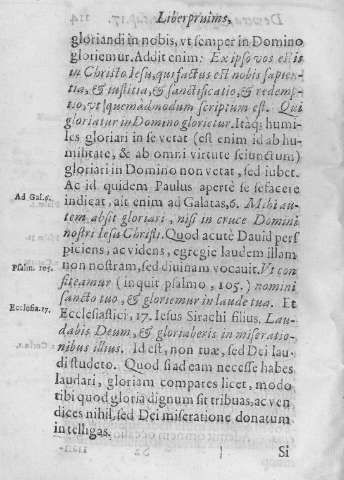 Liber primus,
gloriandi in nobis, vt semper in Domino
gloriemur. Addit enim: Ex ipso vos estis
in Christo Iesu, qui factus est nobis sapien-
tia, & iustitia, & sanctificatio, & redemp-
tio, vt (quemadmodum scriptum est. Qui
gloriatur in Domino glorietur. Itaq; humi-
les gloriari in se vetat (est enim id ab hu-
militate, & ab omni virtute seiunctum)
gloriari in Domino non vetat, sed iubet.
Ac id quidem Paulus apertè se fefacere
indicat, ait enim ad Galatas, 6. Mihi au-
Ad Gal.6.
tem absit gloriari, nisi in cruce Domini
nostri Iesu Christi. Quod acutè Dauid pers
piciens, ac videns, egregie laudem illam
non nostram, sed diuinam vocauit. Vt con
Psalm. 105.
fiteamur (inquit psalmo, 105.) nomini
sancto tuo, & gloriemur in laude tua. Et
Ecclesiastici, 17. Iesus Sirachi filius. Lau-
Ecclesia.17.
dabis Deum, & gloriaberis in miseratio-
nibus illius. Id est, non tuæ, sed Dei lau-
di studeto. Quod si ad eam necesse habes
laudari, gloriam compares licet, modo
tibi quod gloria dignum sit tribuas, ac ven
dices nihil, sed Dei miseratione donatum
intelligas.
Si